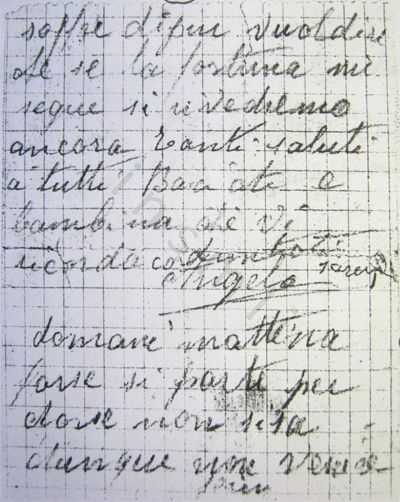 soffre di piu vuol dire
che se la fortuna mi
segue si rivedremo
ancora Tanti saluti
a tutti Baciate e
bambina che vi
ricorda con
Angelo
domani mattena
forse si parte per
dove non si sa
dunque non venire
piu